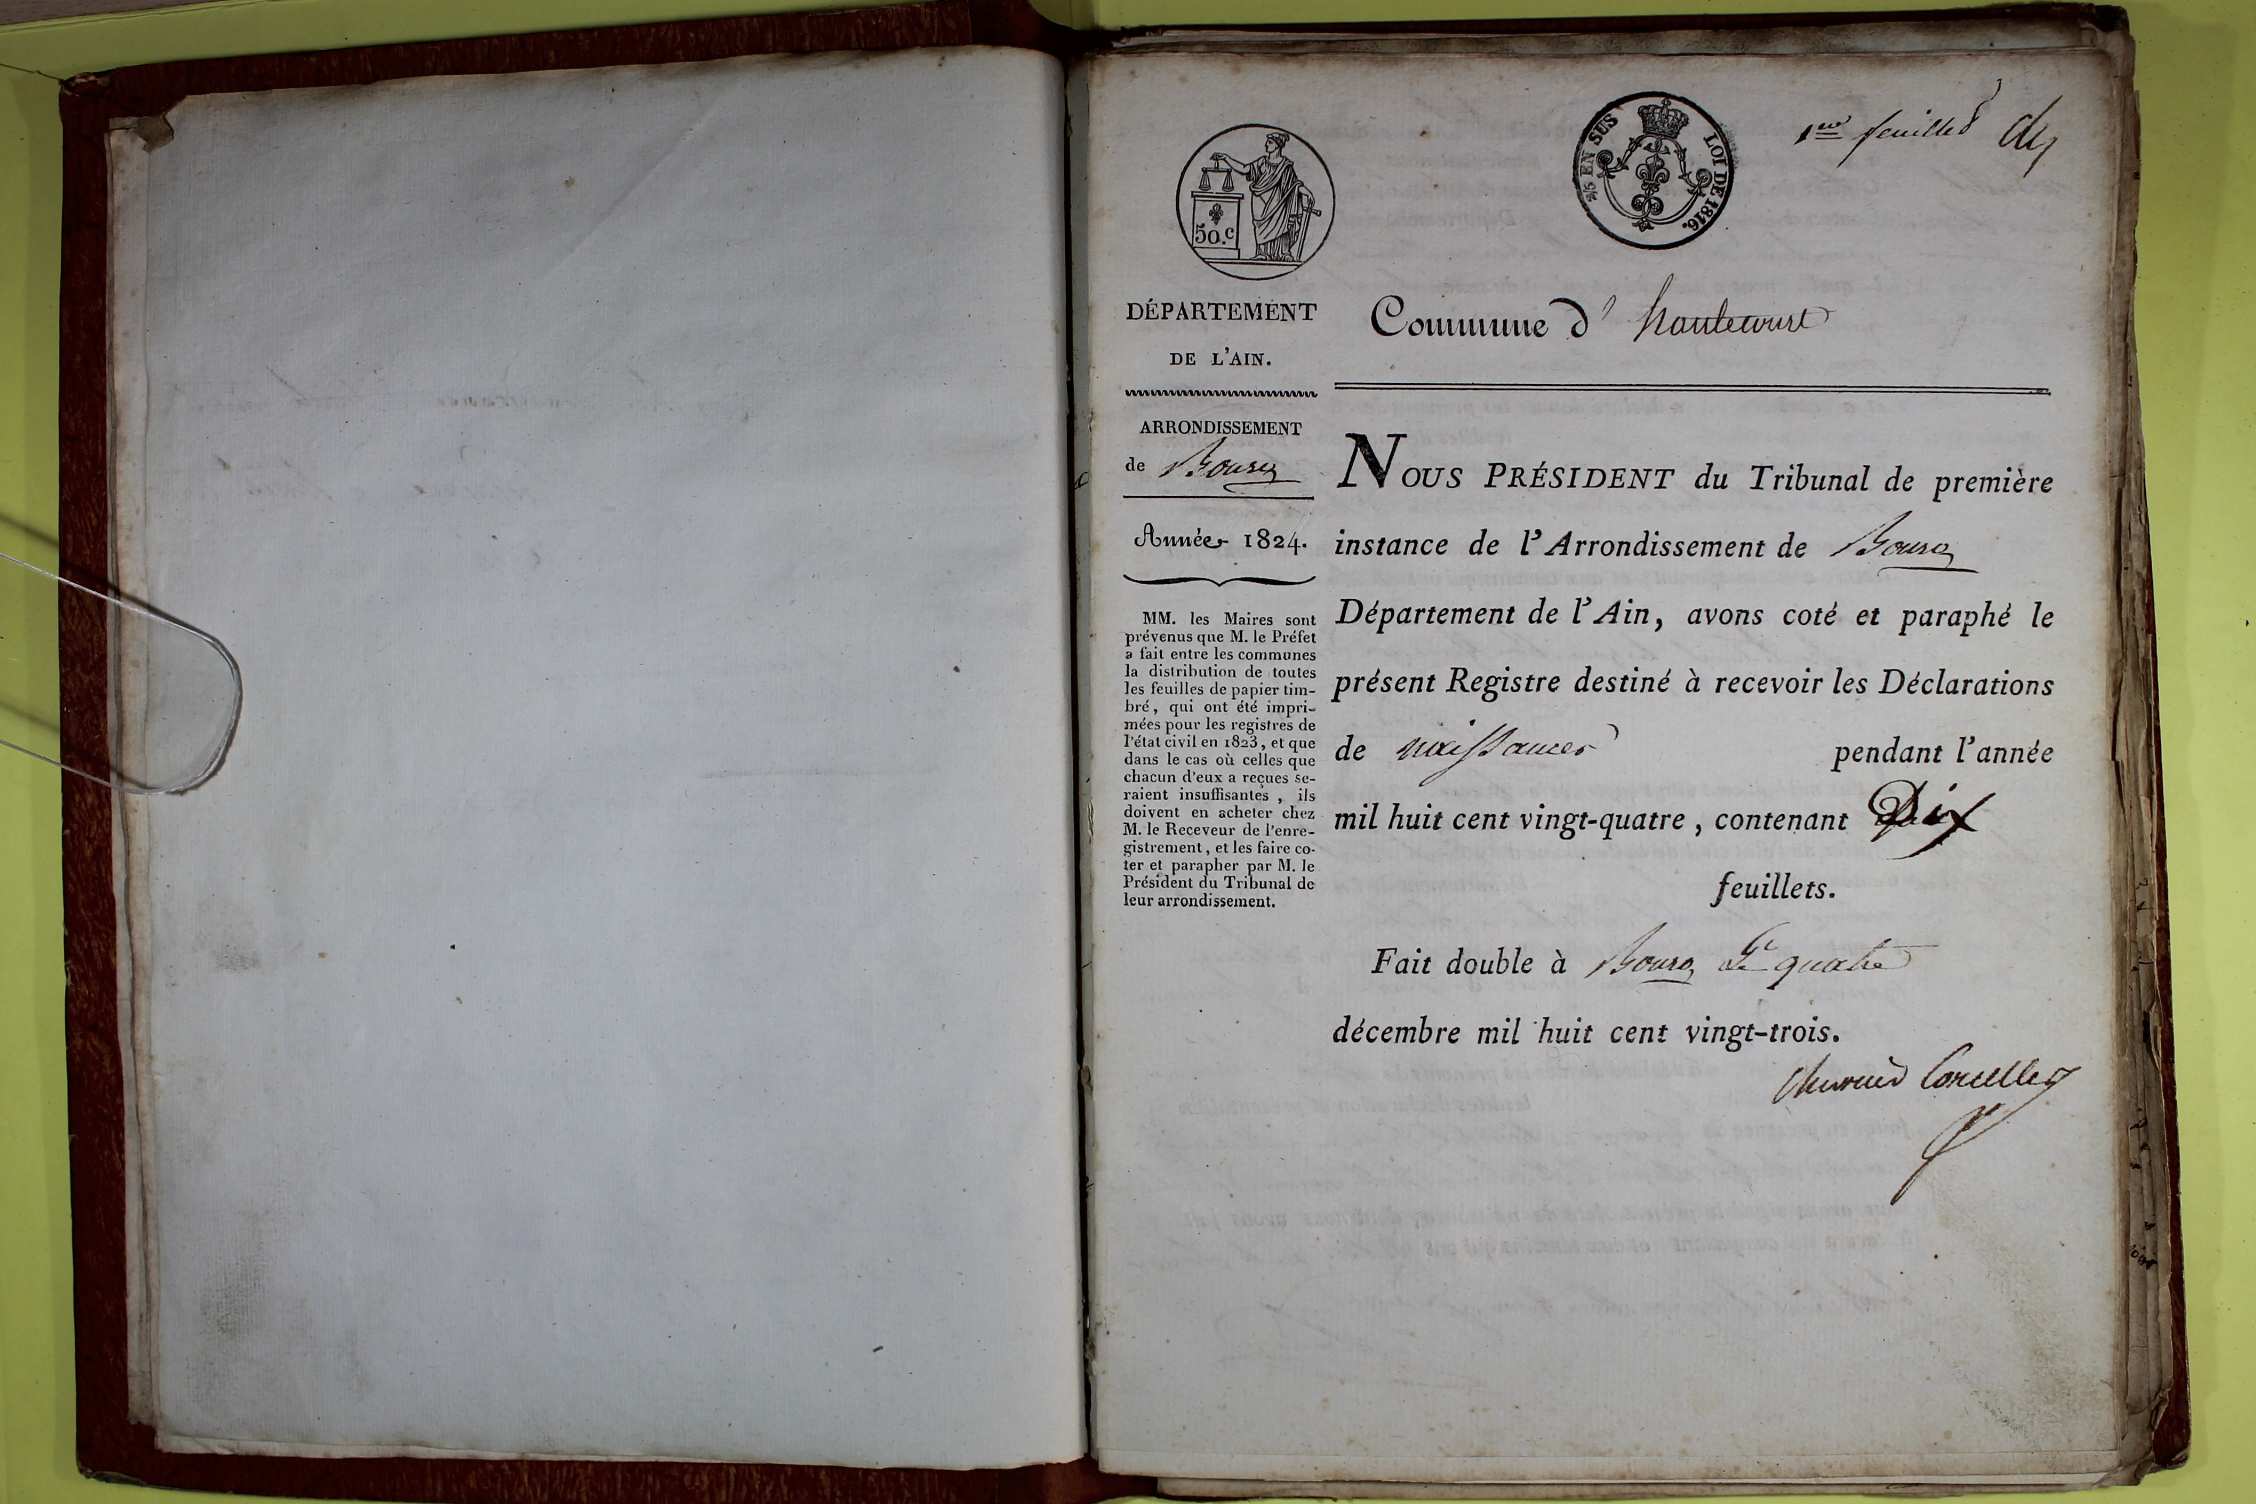 1er feuillet
50.c
2/5 EN SUS
LOI DE 1816.
DÉPARTEMENT
DE L'AIN.
ARRONDISSEMENT
de Bourg
Année 1824.
MM. les Maires sont
prévenus que M. le Préfet
a fait entre les communes
la distribution de toutes
les feuilles de papier tim-
bré, qui ont été impri-
mées pour les registres de
l'état civil en 1823, et que
dans le cas où celles que
chacun d'eux a reçues se-
raient insuffisantes, ils
doivent en acheter chez
M. le Receveur de l'enre-
gistrement, et les faire co-
ter et parapher par M. le
Président du Tribunal de
leur arrondissement.
Commune d' hautecourt
NOUS PRÉSIDENT du Tribunal de première
instance de l'Arrondissement de Bourg
Département de l'Ain, avons coté et paraphé le
présent Registre destiné à recevoir les Déclarations
de naissances pendant l'année
mil huit cent vingt-quatre, contenant Dix
feuillets.
Fait double à Bourg Le quatre
décembre mil huit cent vingt-trois.